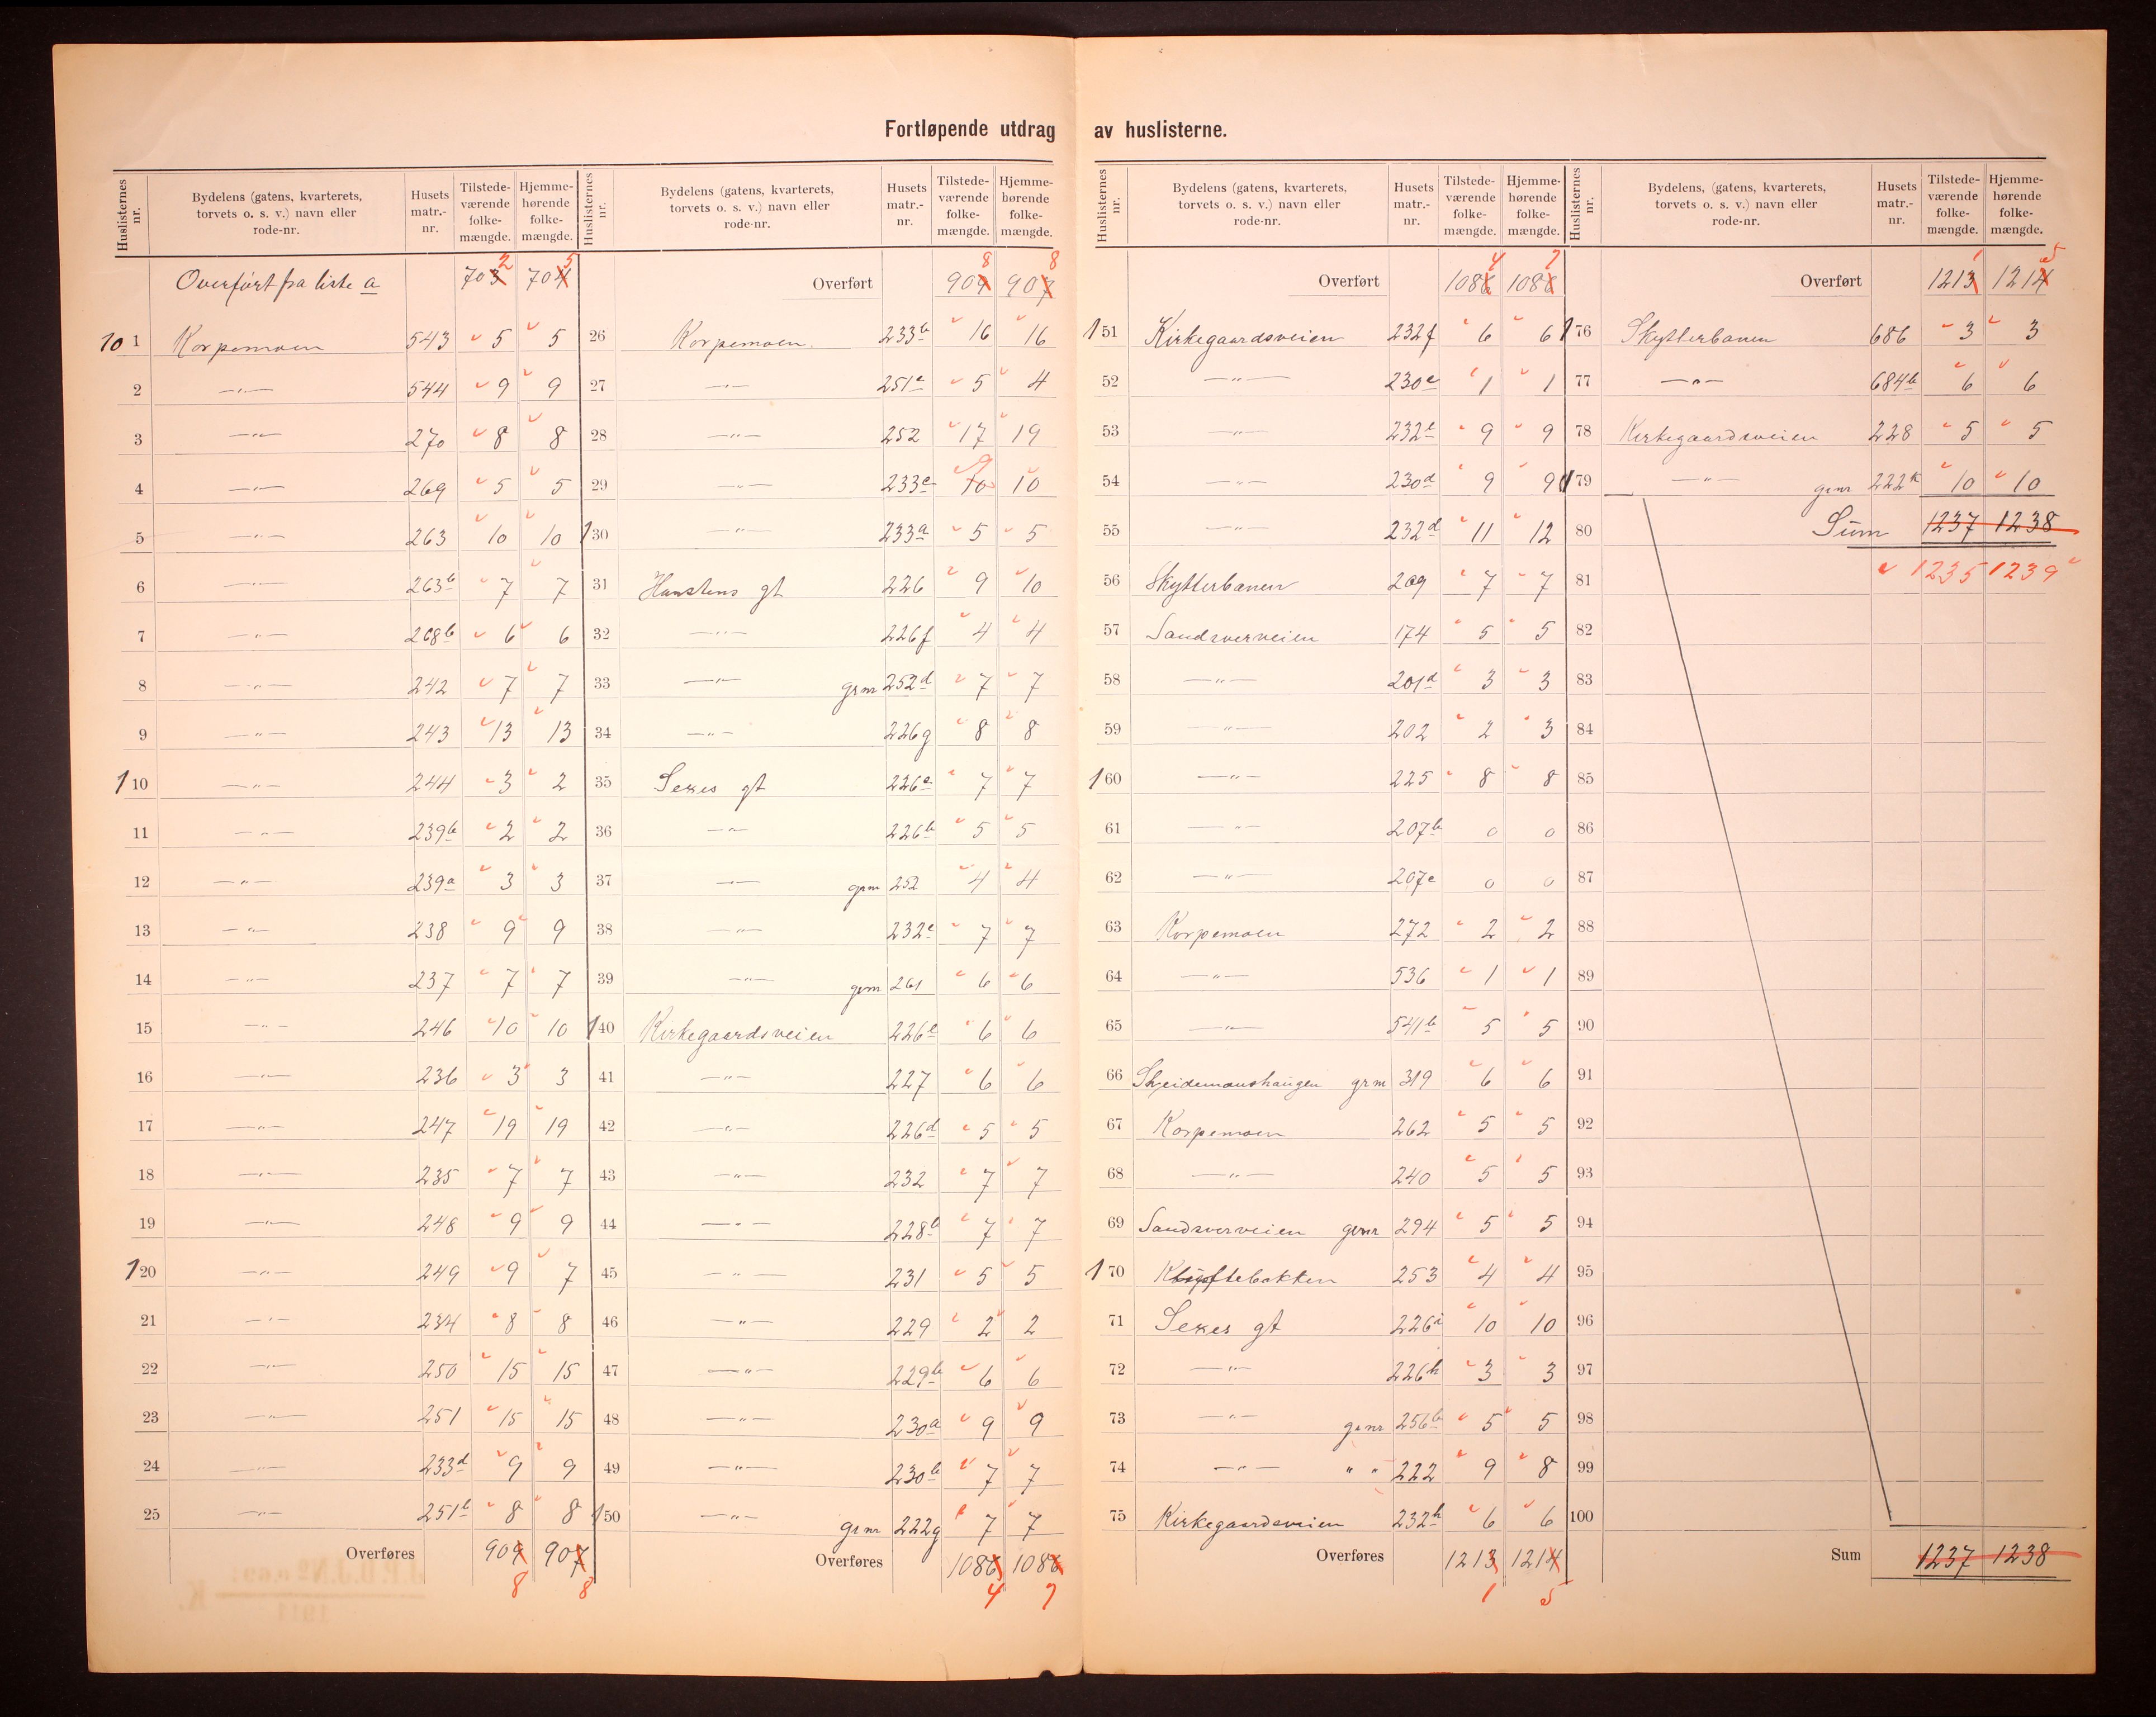 Fortløpende utdrag av huslisterne.
Huslisternes nr. Bydelens (gatens, kvarterets, torvets o. s. v.) navn eller rode-nr. Husets matr.-nr. Tilstede-værende folke-mængde. Hjemme-hørende folke-mængde.
Overført fra liste a 703 2 704 5
10 1 Korpemoen 543 5 5
2 —"— 544 9 9
3 —"— 270 8 8
4 —"— 269 5 5
5 —"— 263 10 10
6 —"— 263b 7 7
7 —"— 268b 6 6
8 —"— 242 7 7
9 —"— 243 13 13
1 10 —"— 244 3 2
11 —"— 239b 2 2
12 —"— 239a 3 3
13 —"— 238 9 9
14 —"— 237 7 7
15 —"— 246 10 10
16 —"— 236 3 3
17 —"— 247 19 19
18 —"— 235 7 7
19 —"— 248 9 9
1 20 —"— 249 9 7
21 —"— 234 8 8
22 —"— 250 15 15
23 —"— 251 15 15
24 —"— 233d 9 9
25 —"— 251b 8 8
Overføres 909 907
8 8
Huslisternes nr. Bydelens (gatens, kvarterets, torvets o. s. v.) navn eller rode-nr. Husets matr.-nr. Tilstede-værende folke-mængde. Hjemme-hørende folke-mængde.
8 8
Overført 909 907
26 Korpemoen. 233b 16 16
27 —"— 251c 5 4
28 —"— 252 17 19
29 —"— 233c 10 9 10
1 30 —"— 233a 5 5
31 Hanstens gt 226 9 10
32 —"— 226f 4 4
33 —"— grm 252d 7 7
34 —"— 226g 8 8
35 Sexes gt 226a 7 7
36 —"— 226b 5 5
37 —"— grm 252 4 4
38 —"— 232c 7 7
39 —"— grm 261 6 6
1 40 Kirkegaardsveien 226e 6 6
41 —"— 227 6 6
42 —"— 226d 5 5
43 —"— 232 7 7
44 —"— 228b 7 7
45 —"— 231 5 5
46 —"— 229 2 2
47 —"— 229b 6 6
48 —"— 230a 9 9
49 —"— 230b 7 7
1 50 —"— grnr 222g 7 7
Overføres 1086 1086
4 7
Huslisternes nr. Bydelens (gatens, kvarterets, torvets o. s. v.) navn eller rode-nr. Husets matr.-nr. Tilstede-værende folke-mængde. Hjemme-hørende folke-mængde.
4 7
Overført 1086 1086
1 51 Kirkegaardsveien 232f 6 6
52 —"— 230c 1 1
53 —"— 232e 9 9
54 —"— 230d 9 9
55 —"— 232d 11 12
56 Skytterbanen 209 7 7
57 Sandsverveien 174 5 5
58 —"— 201d 3 3
59 —"— 202 2 3
1 60 —"— 225 8 8
61 —"— 207b 0 0
62 —"— 207c 0 0
63 Korpemoen 272 2 2
64 —"— 536 1 1
65 —"— 541b 5 5
66 grm 319 6 6
67 Korpemoen 262 5 5
68 —"— 240 5 5
69 Sandsverveien grnr 294 5 5
1 70 253 4 4
71 Sexes gt 226i 10 10
72 —"— 226h 3 3
73 —"— grnr 256b 5 5
74 —"— " " 222 9 8
75 Kirkegaardsveien 232h 6 6
Overføres 1213 1214
1 5
Huslisternes nr. Bydelens, (gatens, kvarterets, torvets o. s. v.) navn eller rode-nr. Husets matr.-nr. Tilstede-værende folke-mængde. Hjemme-hørende folke-mængde.
1 5
Overført 1213 1214
1 76 Skytterbanen 686 3 3
77 —"— 684b 6 6
78 Kirkegaardsveien 228 5 5
79 —"— grnr 222k 10 10
80 Sum 1237 1238
81 1235 1239
82
83
84
85
86
87
88
89
90
91
92
93
94
95
96
97
98
99
100
Sum 1237 1238